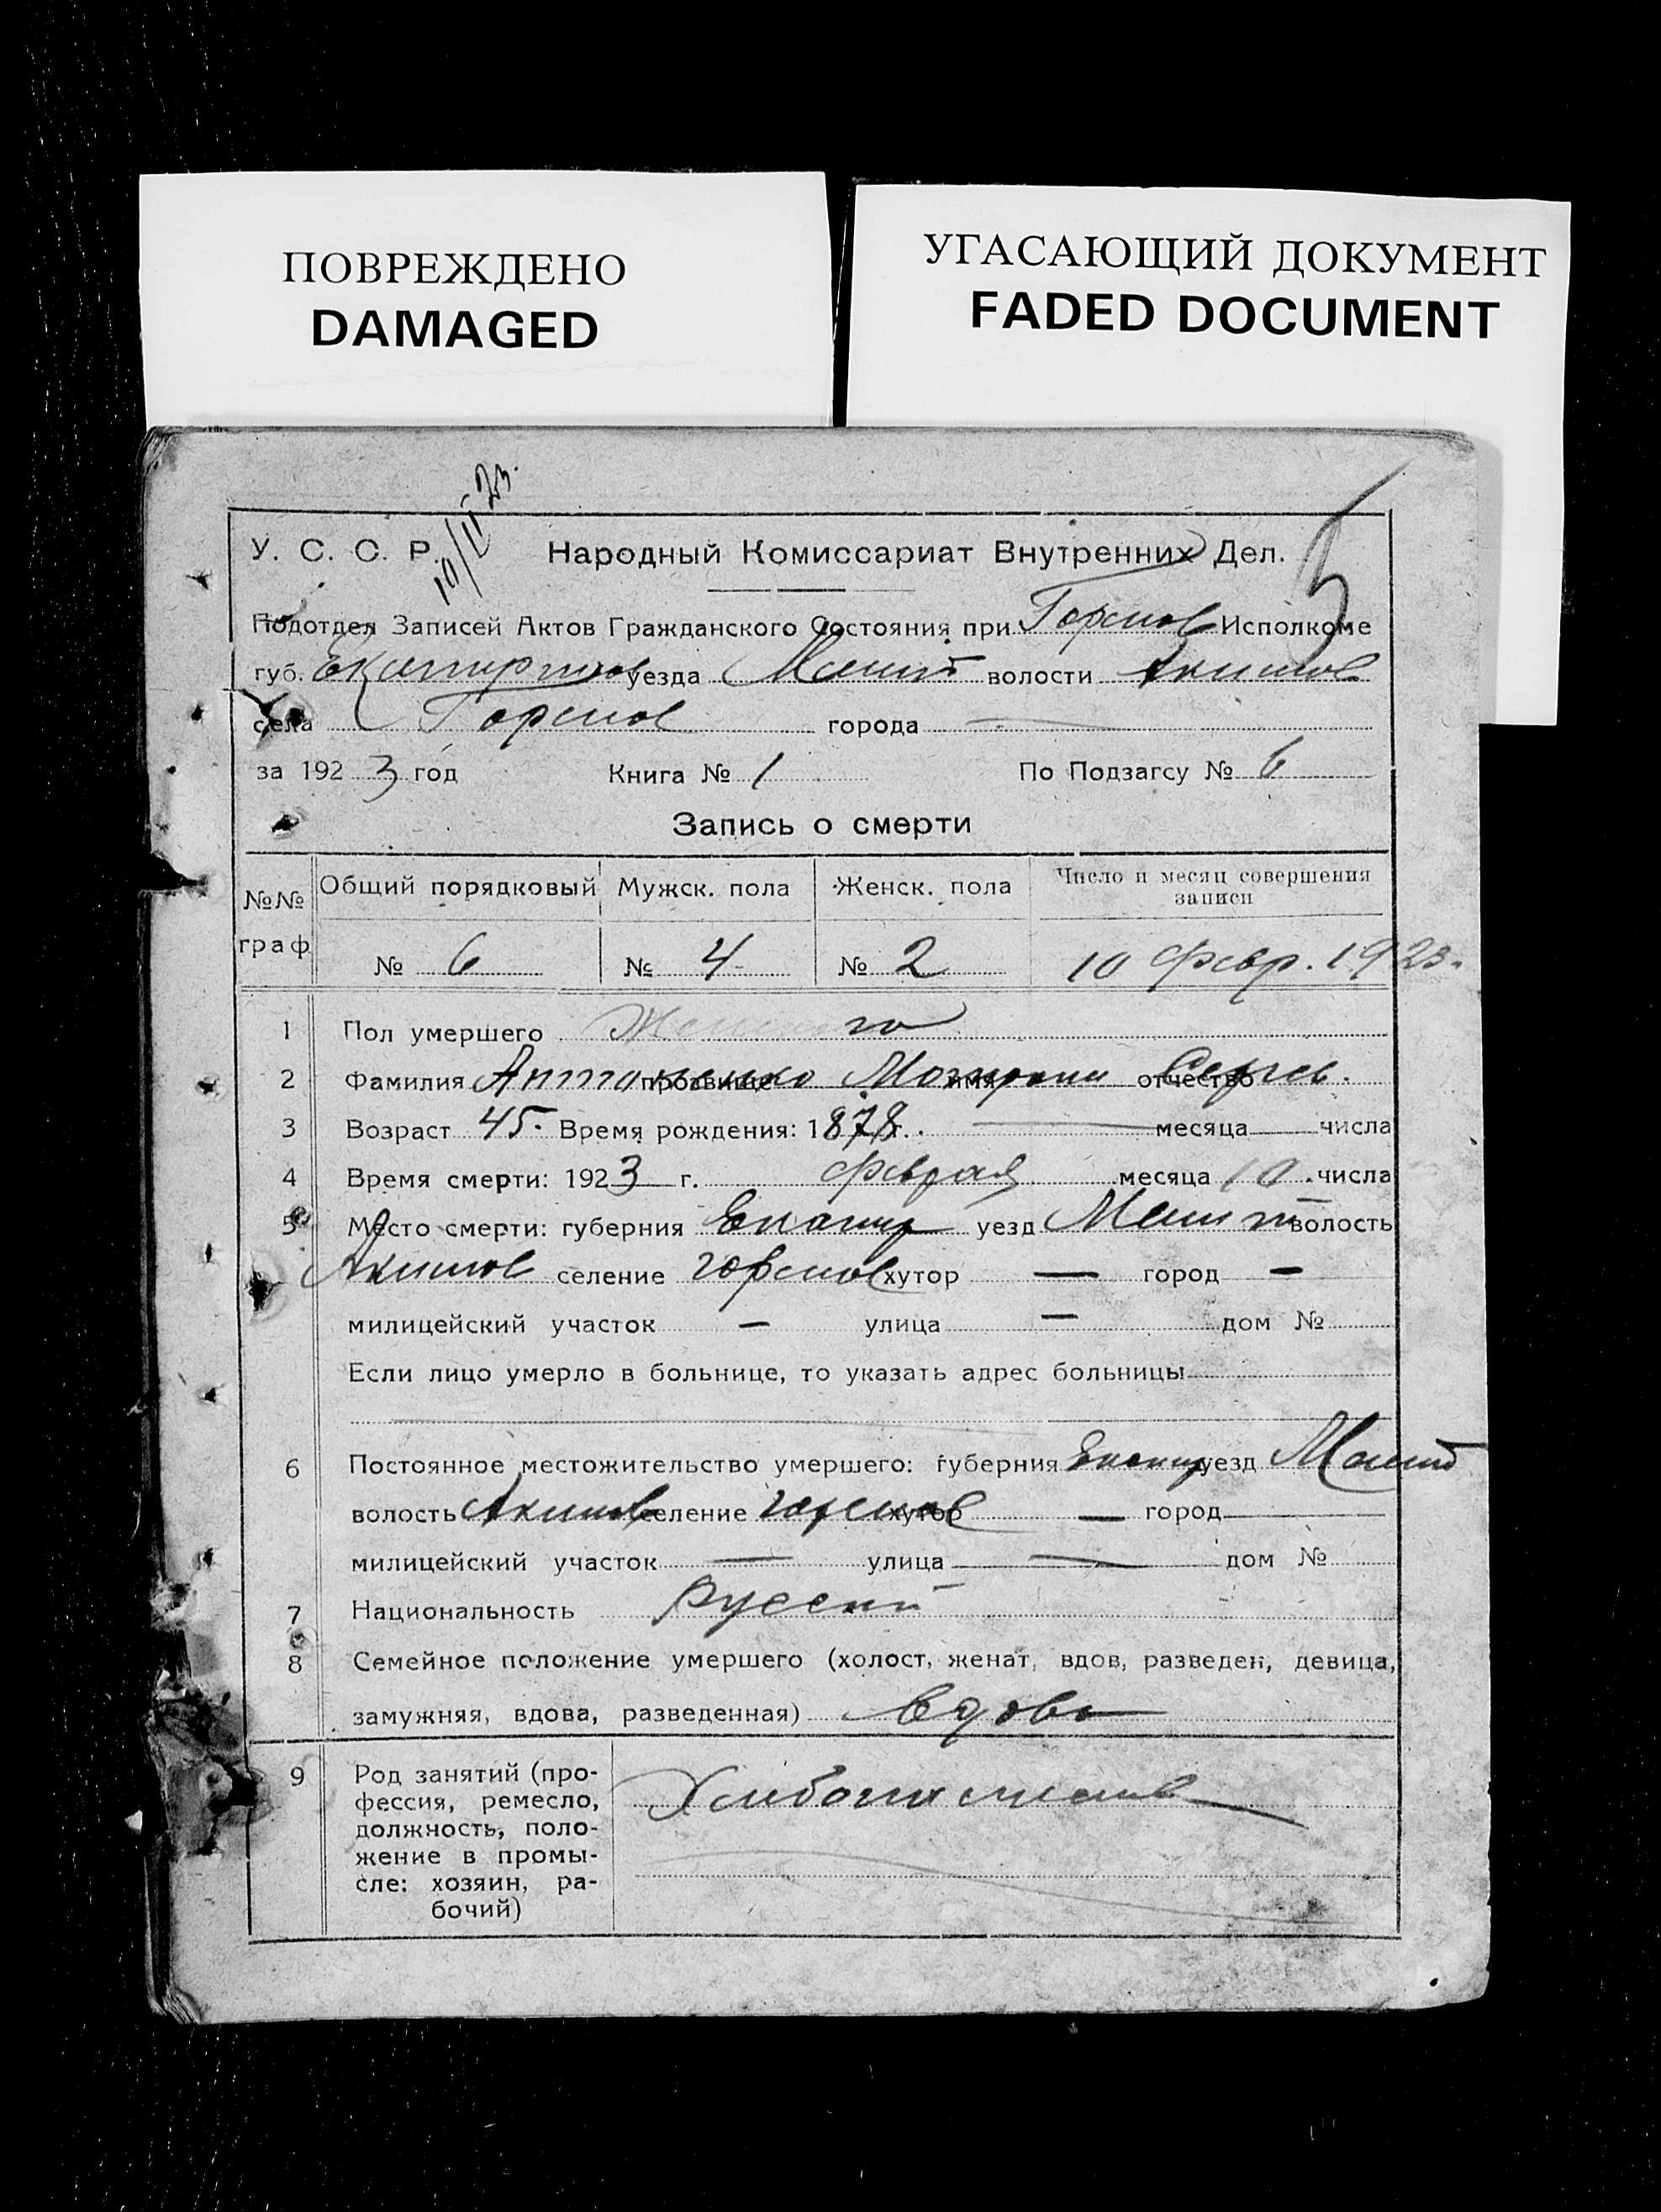 ПОВРЕЖДЕНО
DAMAGED
УГАСАЮЩИЙ ДОКУМЕНТ
FADED DOCUMENT
10/II 23.
5
У. С. С. Р. Народный Комиссариат Внутренних Дел.
Подотдел Записей Актов Гражданского Состояния при Горснов Исполкоме
губ. уезда Мелит волости Акимов
села Горснов города —
за 1923 год Книга № 1 По Подзагсу № 6
Запись о смерти
№№ граф Общий порядковый Мужск. пола Женск. пола Число и месяц совершения записи
№ 6 № 4 № 2 10 Февр. 1923.
1 Пол умершего Женского
2 Фамилия Антоненко прозвище имя Мотрони отчество Сергев.
3 Возраст 45. Время рождения: 1878 г. — месяца — числа
4 Время смерти: 1923 г. Февраля месяца 10 числа
5 Место смерти: губерния Екатер уезд Мелит волость
Акимов селение Горснов хутор — город —
милицейский участок — улица — дом №
Если лицо умерло в больнице, то указать адрес больницы
6 Постоянное местожительство умершего: губерния Екатер уезд Мелит
волость Акимов селение Горснов хутор — город —
милицейский участок — улица — дом №
7 Национальность Русский
8 Семейное положение умершего (холост, женат, вдов, разведен, девица,
замужняя, вдова, разведенная) Вдова
9 Род занятий (про-
фессия, ремесло,
должность, поло-
жение в промы-
сле: хозяин, ра-
бочий)